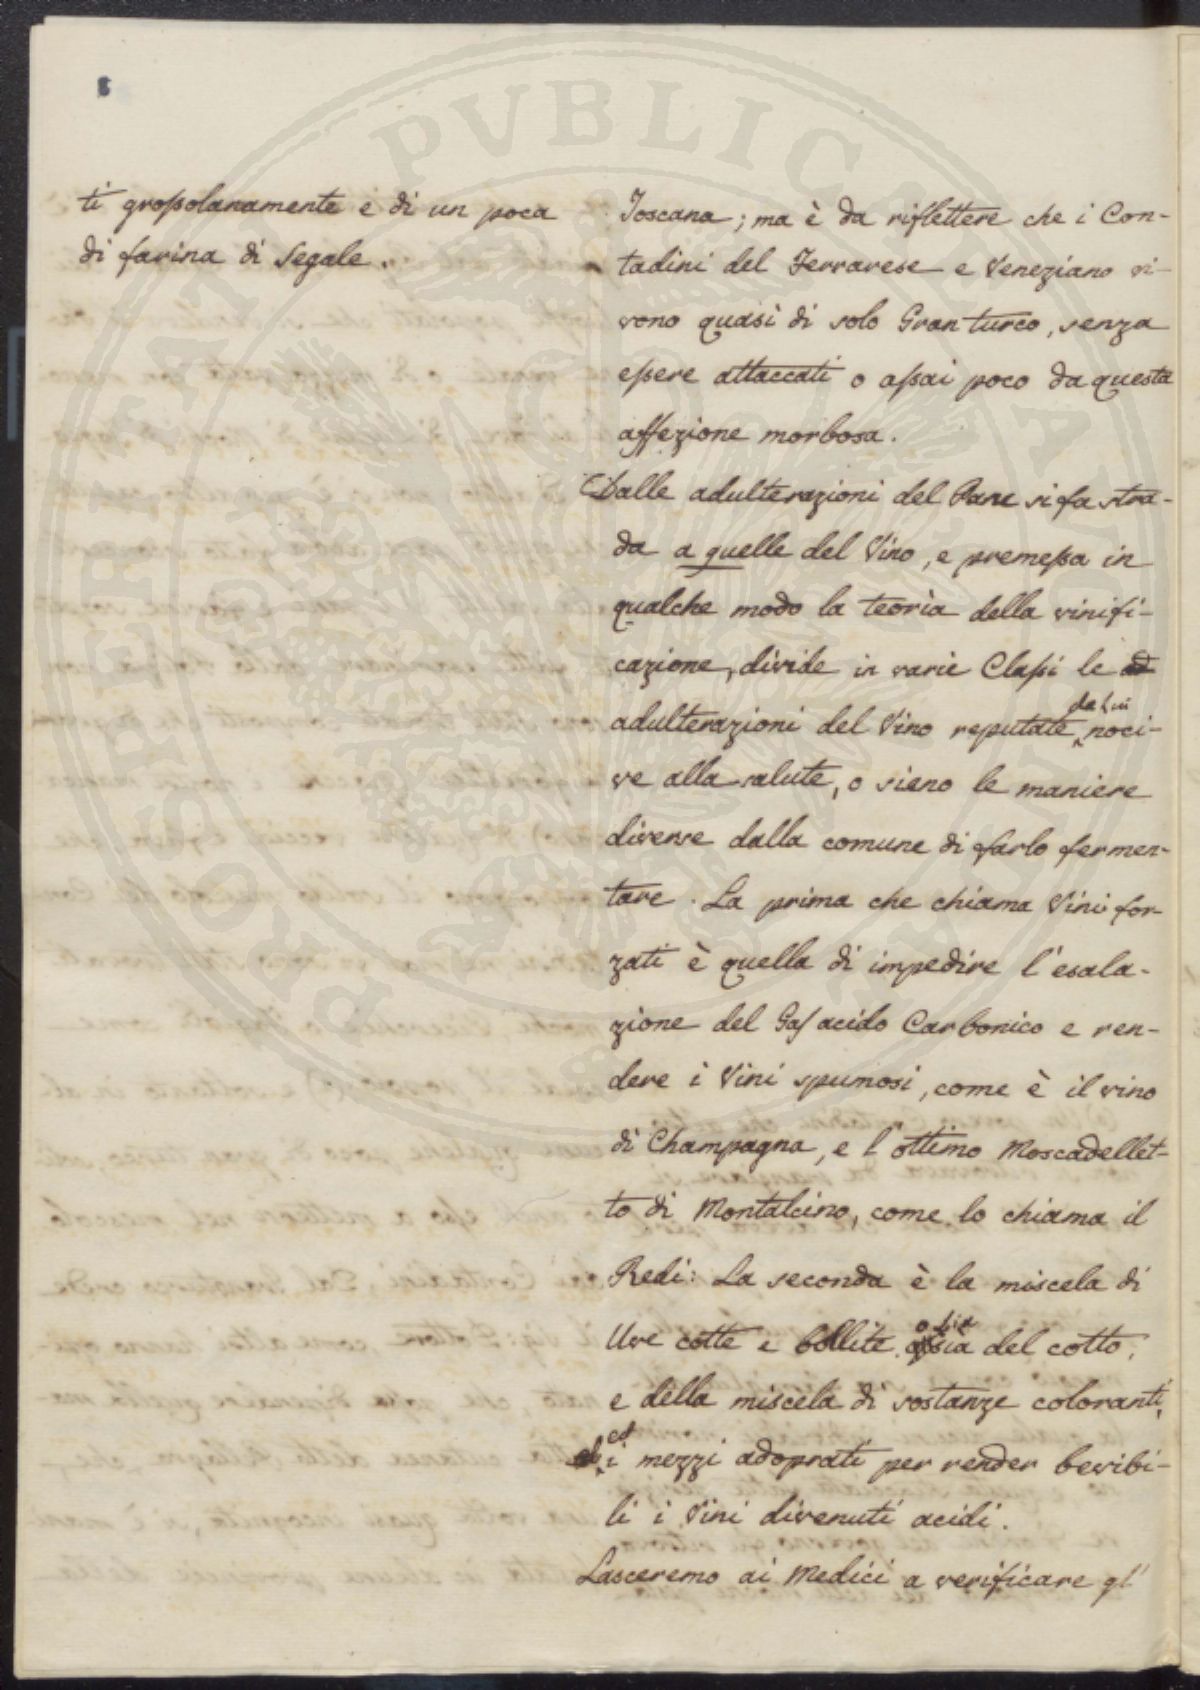 ti grossolanamente e di un poca
di farina di Segale.
Toscana; ma è da riflettere che i Con-
tadini del Ferrarese e Veneziano vi-
vono quasi di solo Gran turco, senza
essere attaccati o assai poco da questa
affezione morbosa.
Dalle adulterazioni del Pane si fa stra-
da a quelle del Vino, e premessa in
qualche modo la teorìa della vinifi-
cazione, divide in varie Classi le ad
adulterazioni del Vino reputate da Lui noci-
ve alla salute, o sieno le maniere
diverse dalla comune di farlo fermen-
tare. La prima che chiama Vini for-
zati è quella di impedire l'esala-
zione del Gas acido Carbonico e ren-
dere i Vini spumosi, come è il vino
di Champagna, e l'ottimo Moscadellet-
to di Montalcino, come lo chiama il
Redi: La seconda è la miscela di
Uve cotte e bollite o sia del cotto,
e della miscela di sostanze coloranti,
ed i mezzi adoprati per render bevibi-
li i Vini divenuti acidi.
Lasceremo ai Medici a verificare gl'
PVBLICAE
PROSPERITATIS